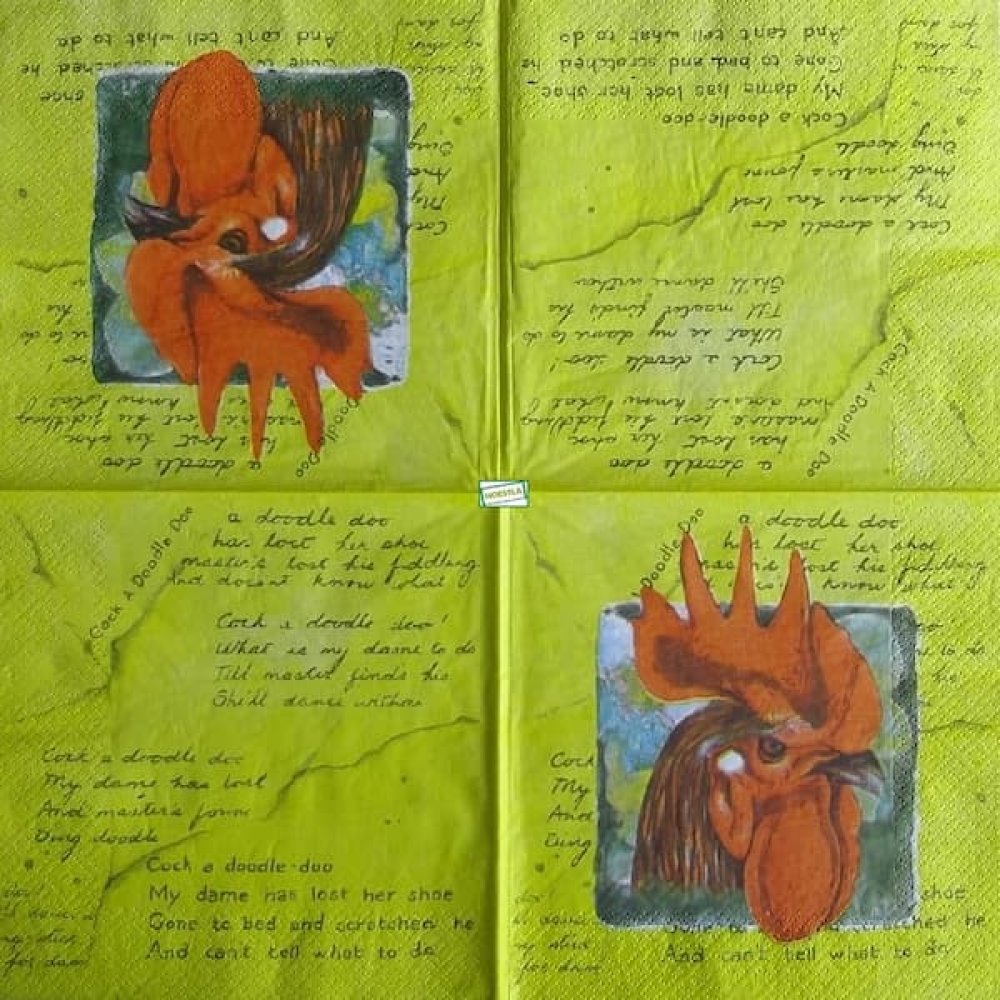 a doodle doo
has lost her shoe
master's lost his fiddling
Doodle Doo
shoe
scratched he
And can't tell what to do
Cock A Doodle Doo
a doodle doo
has lost her shoe
master's lost his fiddling
And doesnt know what
Cock a doodle doo!
What is my dame to do
Till master finds his
She'll dance withou
Cock a doodle doo
My dame has lost
And master's foun
Ding doodle
Cock a doodle-doo
My dame has lost her shoe
Gone to bed and scratched he
And can't tell what to do
MOESTLA
Cock A Doodle Doo
a doodle doo
has lost her shoe
master's lost his fiddling
And doesnt know what
Cock a doodle doo!
What is my dame to do
Till master finds his
She'll dance withou
Cock a doodle doo
My dame has lost
And master's foun
Ding doodle
Cock a doodle-doo
My dame has lost her shoe
Gone to bed and scratched he
And can't tell what to do
for dam
Doodle Doo
a doodle doo
lost her shoe
lost his fiddling
know what
to do
his
Cock
My
And
Ding
shoe
Gone to scratched he
And can't tell what to do
for dam